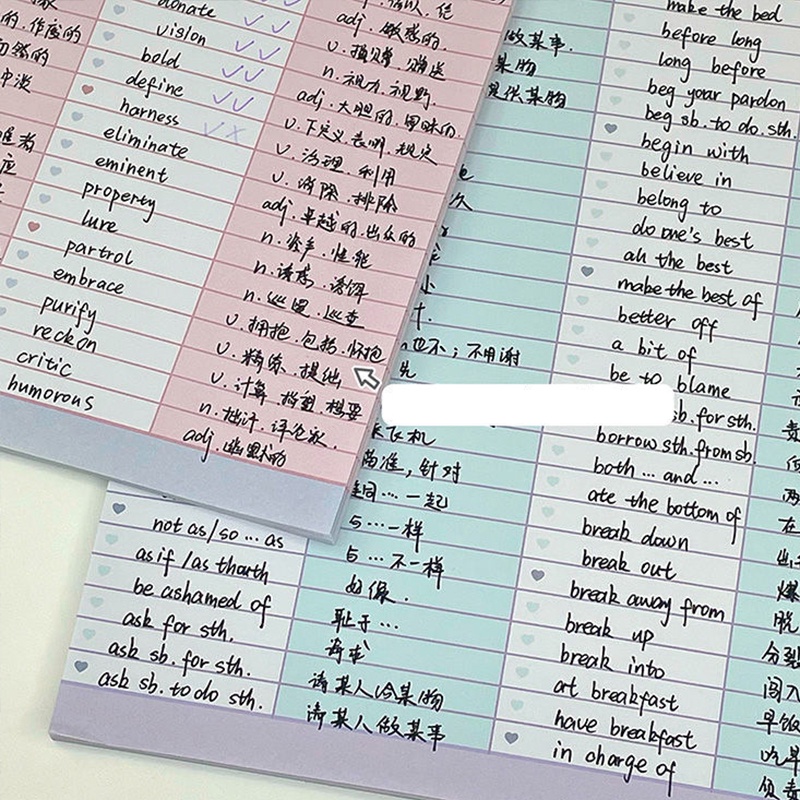 donate
vision
bold
define
harness
eliminate
eminent
property
lure
partrol
embrace
purify
reckon
critic
humorous
adj. 敏感的
v. 捐赠. 赠送
n. 视力. 视野.
adj. 大胆的. 冒昧的
v. 下定义. 表明. 规定
v. 治理. 利用
v. 消除. 排除
adj. 卓越的. 出众的
n. 资产. 性能
n. 诱惑. 诱饵
n. 巡逻. 巡查
v. 拥抱. 包括. 怀抱
v. 精炼. 提纯
v. 计算. 指望. 想要
n. 批评. 评论家.
adj. 幽默的
做某事.
某物
提供某物
也不；不用谢
瞄准，针对
一起
一样
不一样
如像.
耻于…
寻求
请某人给某物
请某人做某事
not as/so … as
as if /as thouth
be ashamed of
ask for sth.
ask sb. for sth.
ask sb. to do sth.
make the bed
before long
long before
beg your pardon
beg sb. to do. sth.
begin with
believe in
belong to
do one's best
all the best
make the best of
better off
a bit of
be to blame
sb. for sth.
borrow sth. from sb.
both … and …
ate the bottom of
break down
break out
break away from
break up
break into
at breakfast
have breakfast
in charge of